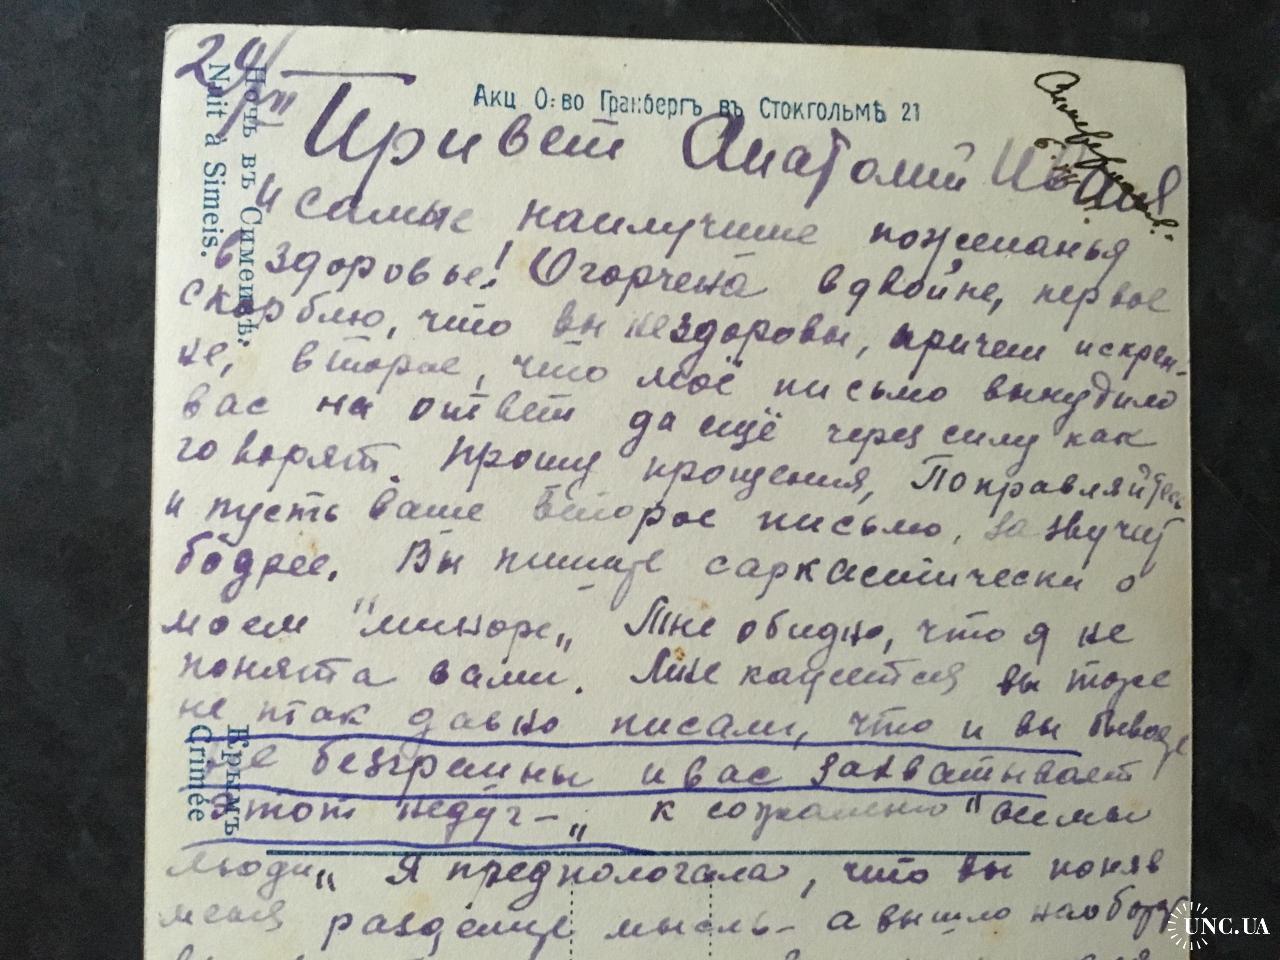 29/VII
Акц О-во Гранбергъ въ Стокгольмѣ 21
Ночь въ Симеизѣ.
Nuit à Simeis.
Привет Анатолий Иван
и самые наилучшие пожеланья
в здоровье! Огорчена вдвойне, первое
скорблю, что вы нездоровы, причем искрен-
не, второе, что моё письмо вынудило
вас на ответ да ещё через силу как
говорят. Прошу прощения, Поправляйтесь
и пусть ваше второе письмо, зазвучит
бодрее. Вы пишите саркастически о
моем "миноре„ Мне обидно, что я не
понята вами. Мне кажется вы тоже
не так давно писали, что и вы бываете
не безгрешны и вас захватывает
этот недуг-„ к сожалению "все мы
люди„ Я предпологала, что вы поняв
меня разделите мысль- а вышло наоборот
Крымъ
Crimée
UNC.UA